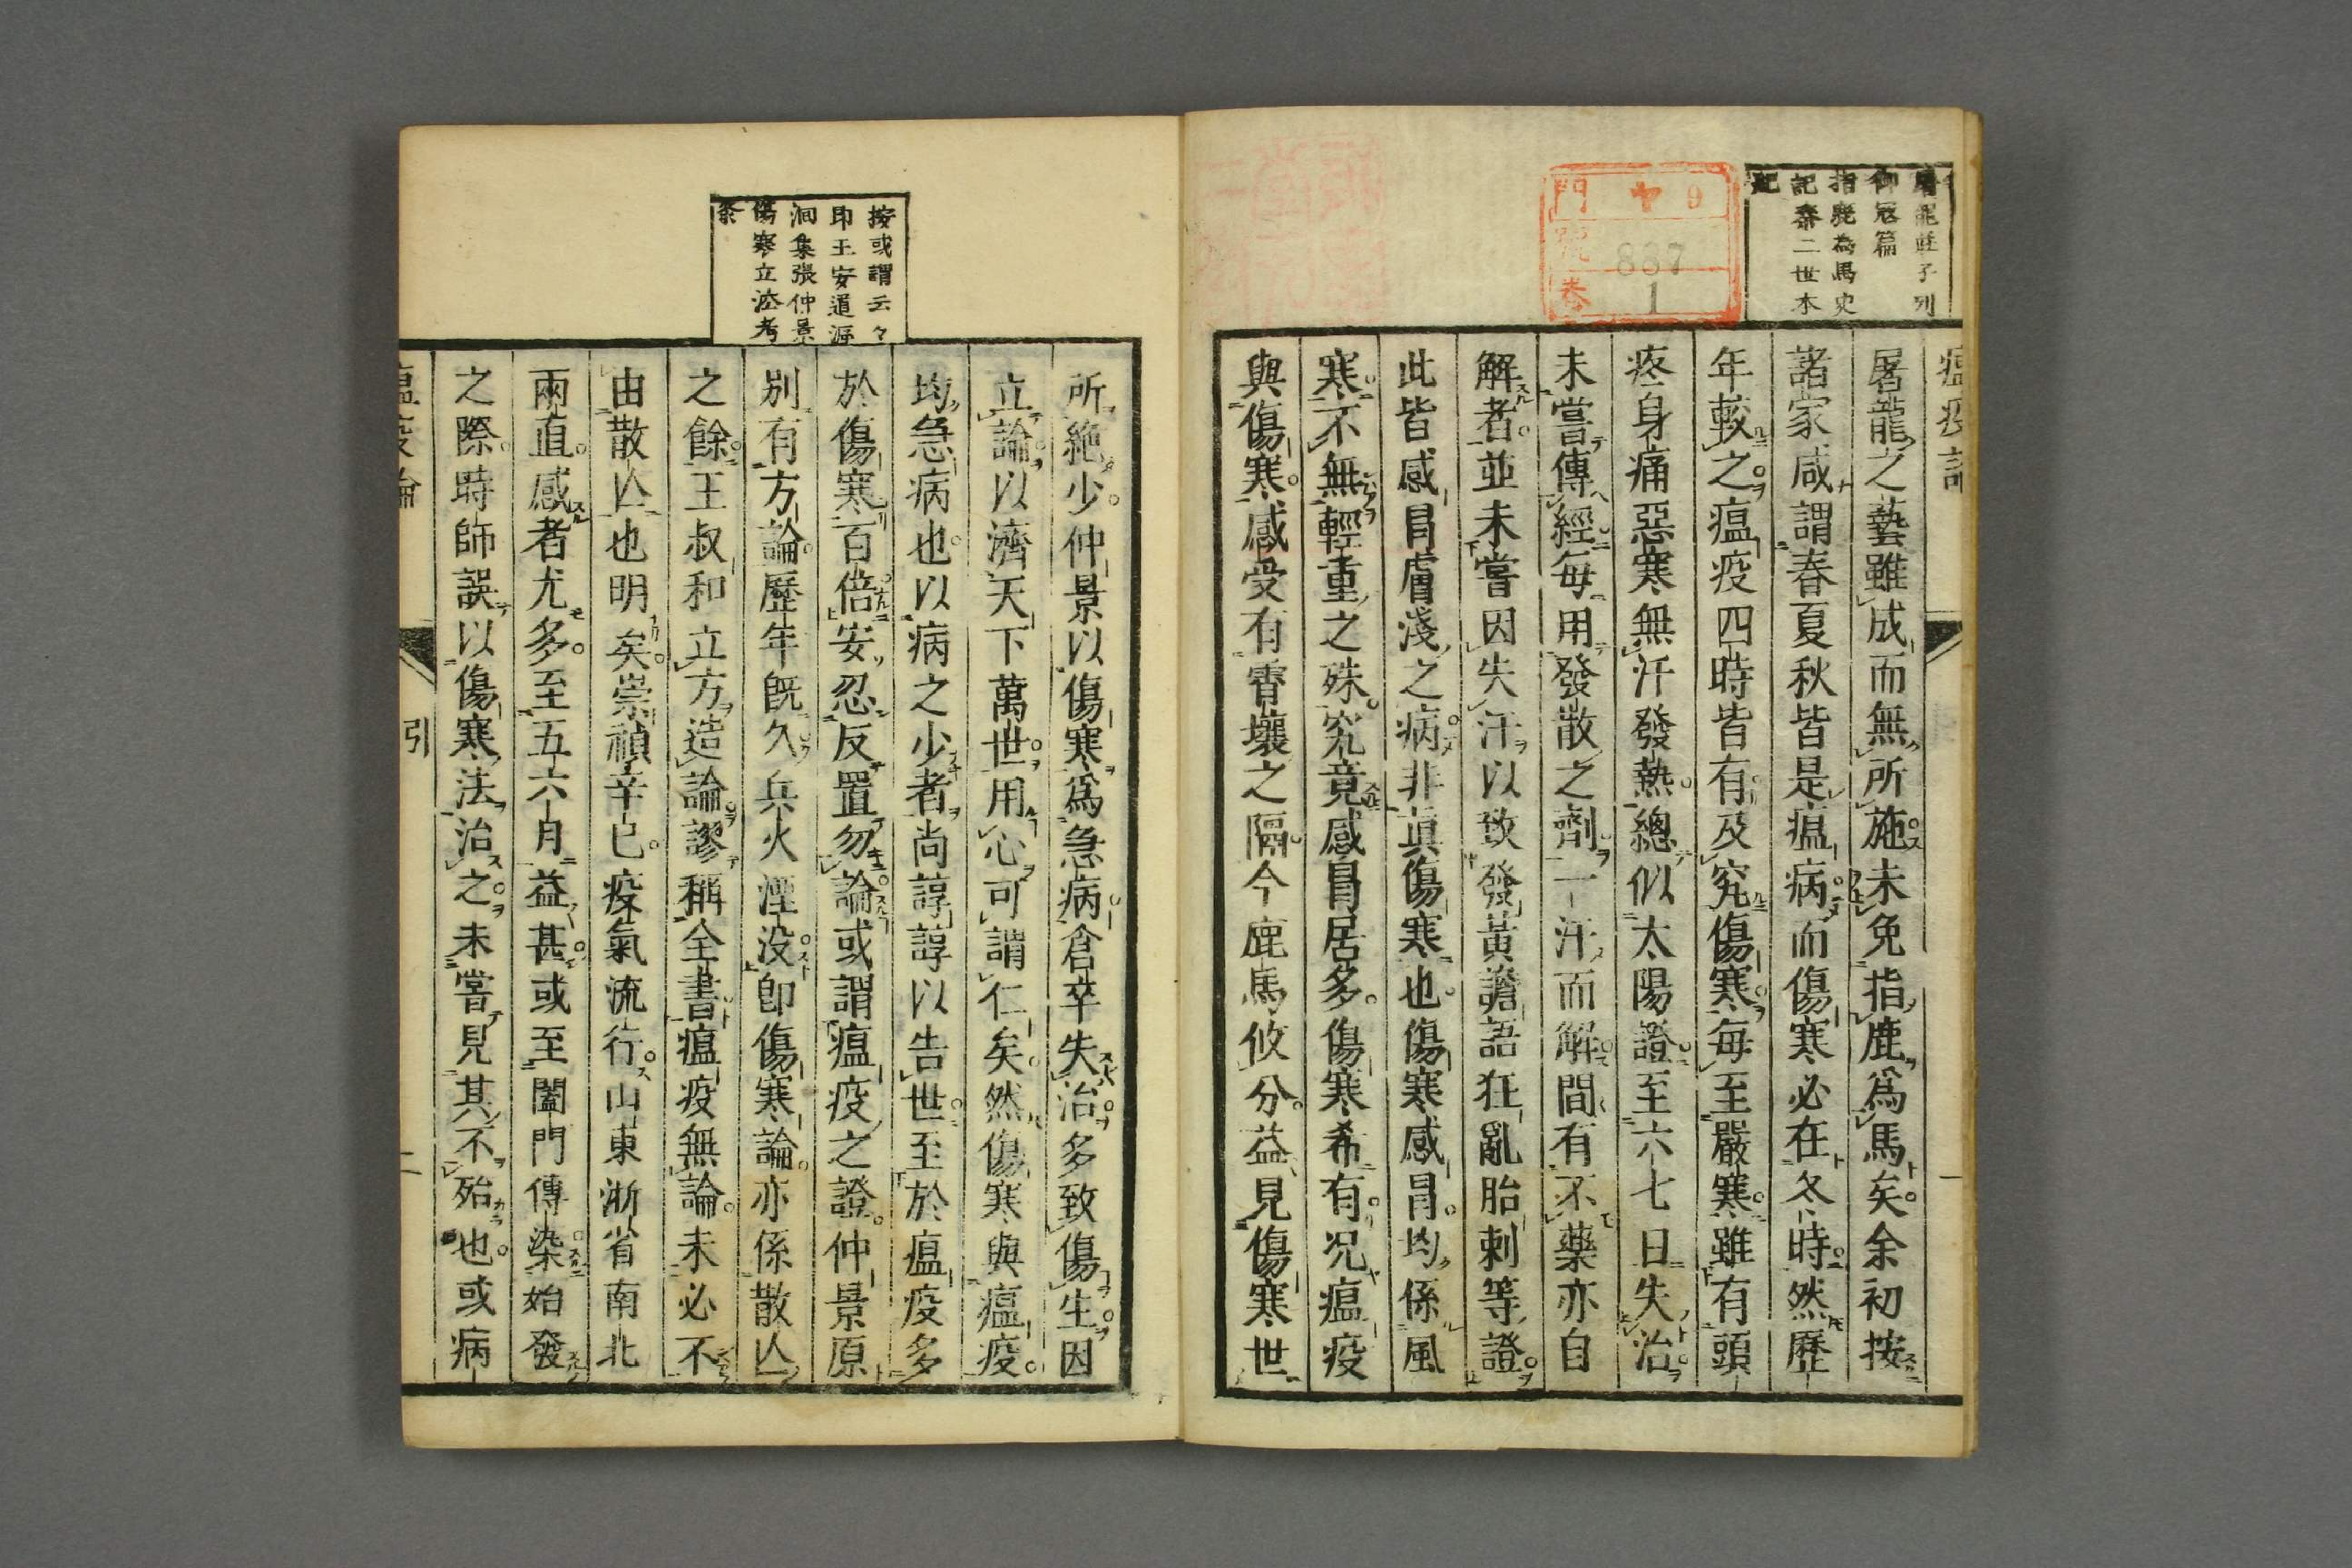 屠龍莊子列
御寇篇
指鹿為馬史
記秦二世本
紀
門 ヤ 9
號 887
卷 1
瘟疫論
一
屠龍之藝雖成而無所施未免指鹿爲馬矣余初按
諸家咸謂春夏秋皆是瘟病而傷寒必在冬時然歷
年較之瘟疫四時皆有及究傷寒每至嚴寒雖有頭
疼身痛惡寒無汗發熱總似太陽證至六七日失治
未嘗傳經每用發散之劑一汗而解間有不藥亦自
解者並未嘗因失汗以致發黃譫語狂亂胎刺等證
此皆感冒膚淺之病非真傷寒也傷寒感冒均係風
寒不無輕重之殊究竟感冒居多傷寒希有况瘟疫
與傷寒感受有霄壤之隔今鹿馬攸分益見傷寒世
按或謂云々
即王安道泝
洄集張仲景
傷寒立法考
条
所絶少仲景以傷寒爲急病倉卒失治多致傷生因
立論以濟天下萬世用心可謂仁矣然傷寒與瘟疫
均急病也以病之少者尚諄諄以告世至於瘟疫多
於傷寒百倍安忍反置勿論或謂瘟疫之證仲景原
別有方論歷年既久兵火湮没即傷寒論亦係散亾
之餘王叔和立方造論謬稱全書瘟疫無論未必不
由散亾也明矣崇禎辛巳疫氣流行山東浙省南北
兩直感者尤多至五六月益甚或至闔門傳染始發
之際時師誤以傷寒法治之未嘗見其不殆也或病
瘟疫論
引
二